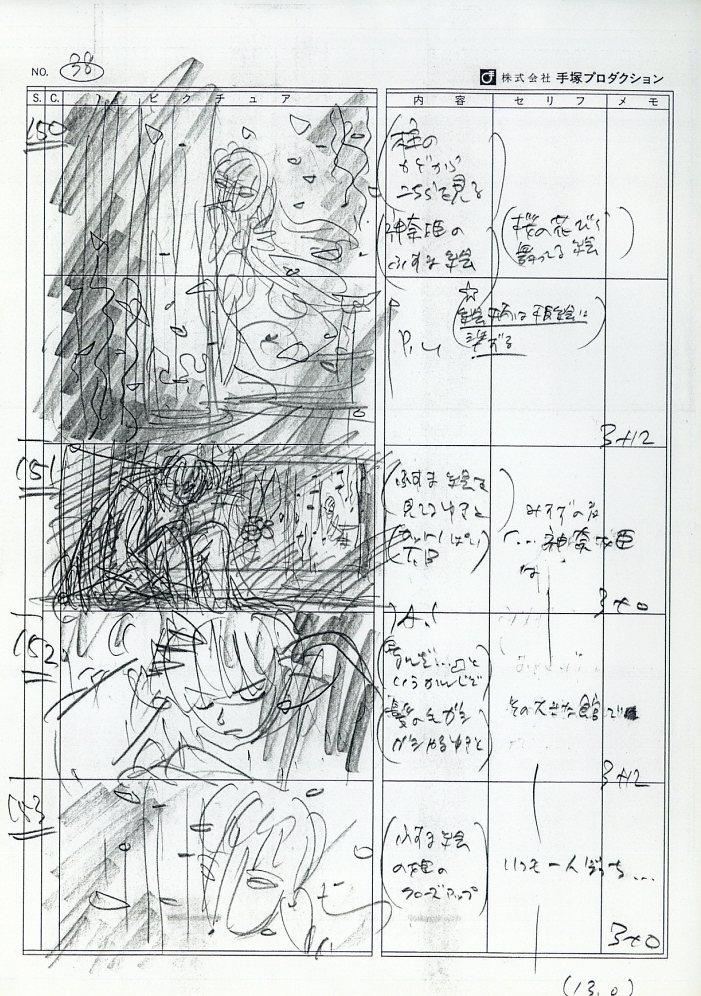 NO. 38
株式会社 手塚プロダクション
S. C. ピクチュア 内容 セリフ メモ
150
柱の
かげから
こちらを見る
神奈姫の
ふすま絵
桜の花びら
舞ってる絵
P.U
3+12
151
ふすま絵を
見てるゆきと
みすずの声
「…神奈姫
は
3+0
152
というかんじで
髪の毛ガシ
ガシやるゆきと
その大きな館で
3+12
153
ふすま絵
の姫の
クローズアップ
いつも一人ぼっち…
3+0
(13.0)